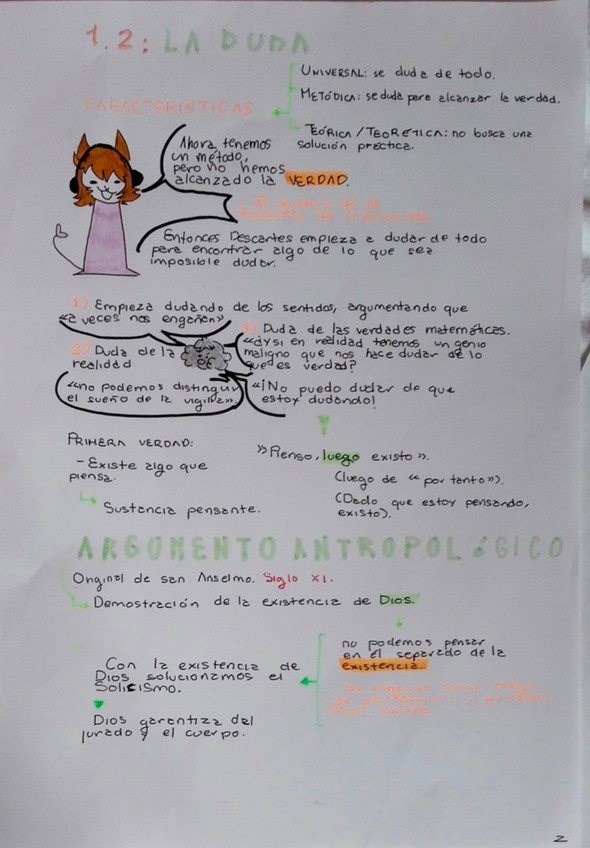 1.2: LA DUDA
UNIVERSAL: se duda de todo.
METÓDICA: se duda para alcanzar la verdad.
CARACTERÍSTICAS
TEÓRICA/TEORETICA: no busca una
solución práctica.
Ahora tenemos
un método,
pero no hemos
alcanzado la VERDAD.
Entonces Descartes empieza a dudar de todo
para encontrar algo de lo que sea
imposible dudar.
1) Empieza dudando de los sentidos, argumentando que
«a veces nos engañan»
2) Duda de la
realidad
«no podemos distinguir
el sueño de la vigilia».
3) Duda de las verdades matemáticas.
«¿y si en realidad tenemos un genio
maligno que nos hace dudar de lo
que es verdad?
«¡No puedo dudar de que
estoy dudando!
PRIMERA VERDAD:
- Existe algo que
piensa.
Sustancia pensante.
»Pienso, luego existo».
(luego de «por tanto»).
(Dado que estoy pensando,
existo).
ARGUMENTO ANTROPOLóGICO
Original de san Anselmo. Siglo XI.
Demostración de la existencia de Dios.
no podemos pensar
en él separado de la
existencia.
Con la existencia de
Dios solucionamos el
Solicismo.
Dios garantiza del
jurado y el cuerpo.
2